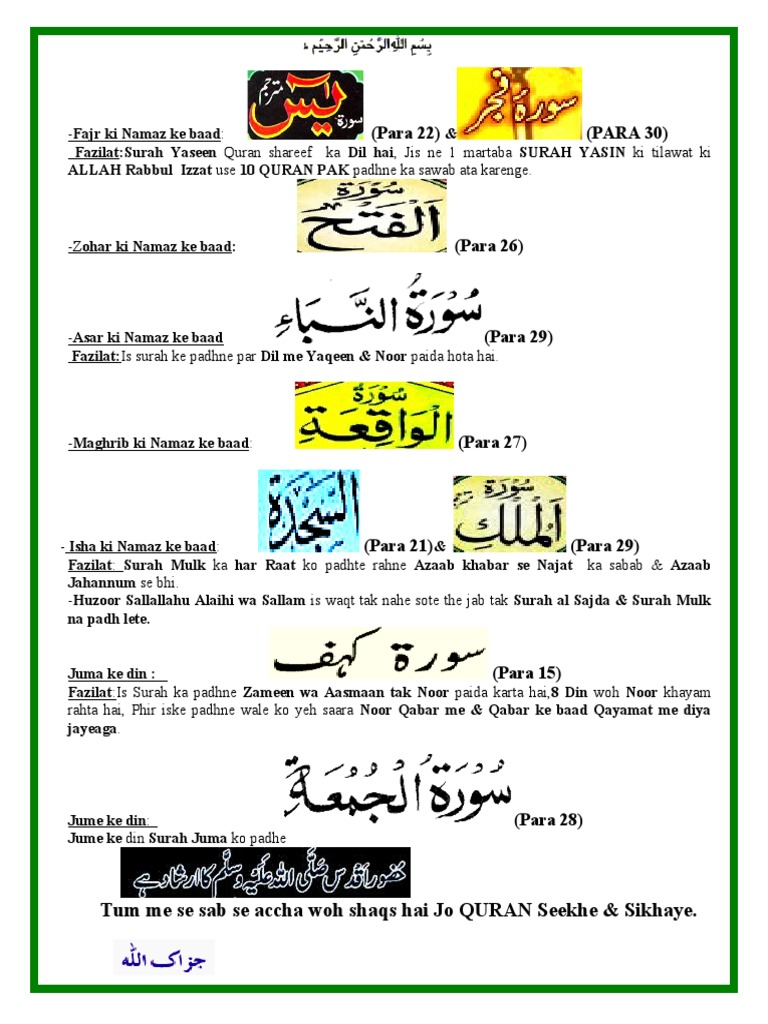 بِسْمِ اللهِ الرَّحْمٰنِ الرَّحِيْمِ
-Fajr ki Namaz ke baad: سورة يٰسٓ مترجم (Para 22) & سورة فجر (PARA 30)
Fazilat:Surah Yaseen Quran shareef ka Dil hai, Jis ne 1 martaba SURAH YASIN ki tilawat ki
ALLAH Rabbul Izzat use 10 QURAN PAK padhne ka sawab ata karenge.
-Zohar ki Namaz ke baad: سُوْرَةُ الْفَتْحِ (Para 26)
-Asar ki Namaz ke baad سُوْرَةُ النَّبَاِ (Para 29)
Fazilat:Is surah ke padhne par Dil me Yaqeen & Noor paida hota hai.
-Maghrib ki Namaz ke baad: سُوْرَةُ الْوَاقِعَةِ (Para 27)
- Isha ki Namaz ke baad: السَّجْدَة (Para 21)& سُوْرَةُ الْمُلْكِ (Para 29)
Fazilat: Surah Mulk ka har Raat ko padhte rahne Azaab khabar se Najat ka sabab & Azaab
Jahannum se bhi.
-Huzoor Sallallahu Alaihi wa Sallam is waqt tak nahe sote the jab tak Surah al Sajda & Surah Mulk
na padh lete.
Juma ke din : سورة كهف (Para 15)
Fazilat:Is Surah ka padhne Zameen wa Aasmaan tak Noor paida karta hai,8 Din woh Noor khayam
rahta hai, Phir iske padhne wale ko yeh saara Noor Qabar me & Qabar ke baad Qayamat me diya
jayeaga.
Jume ke din: سُوْرَةُ الْجُمُعَةِ (Para 28)
Jume ke din Surah Juma ko padhe
حضور اقدس صلی اللہ علیہ وسلم کا ارشاد ہے
Tum me se sab se accha woh shaqs hai Jo QURAN Seekhe & Sikhaye.
جزاک اللہ